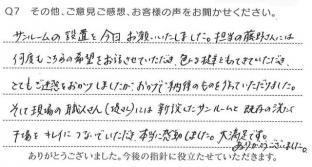 Q7 その他、ご意見ご感想、お客様の声をお聞かせください。
サンルームの設置を今日お願いいたしました。担当の藤野さんには
何度もこちらの希望をお話させていただき、色々提案もしてきていただき、
とてもご迷惑をおかけしましたが、おかげで納得のものを作っていただけました。
そして現場の職人さん(坂さん)には新設したサンルームと既存の洗たく
干場をキレイにつないでいただき、本当に感動しました。大満足です。
ありがとうございました。
ありがとうございました。今後の指針に役立たせていただきます。